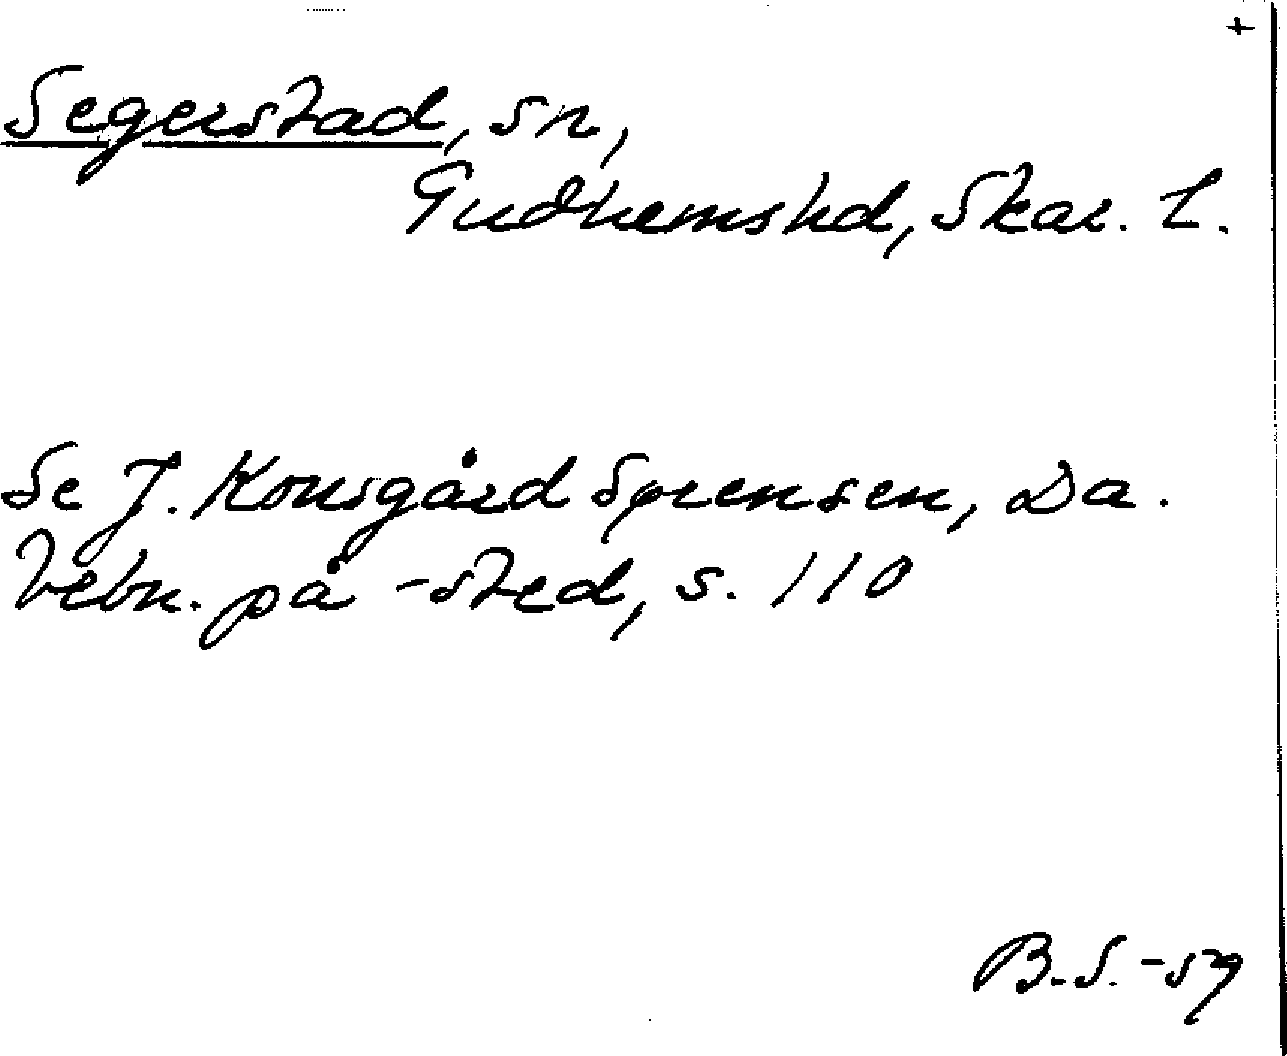 +
Segerstad, sn,
Gudhems hd, Skar. l.
Se J. Kousgård Sørensen, Da.
bebn. på -sted, s. 110
B.S. -59